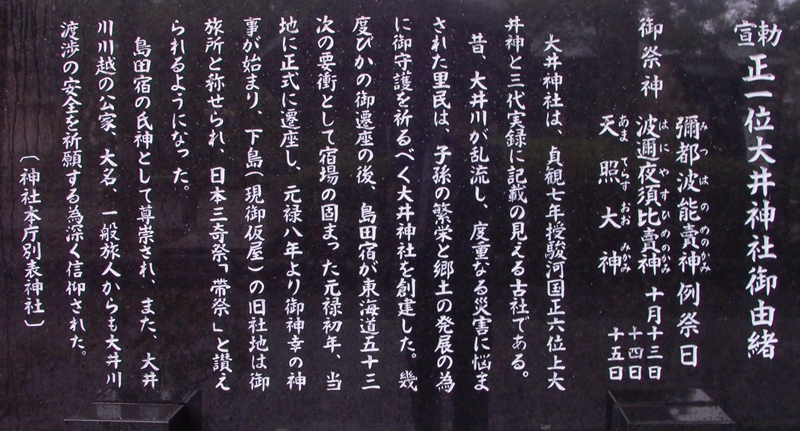 勅宣 正一位大井神社御由緒
御祭神
彌都波能賣神
みつはのめのかみ
波邇夜須比賣神
はにやすひめのかみ
天照大神
あまてらすおおみかみ
例祭日
十月十三日
十四日
十五日
大井神社は、貞観七年授駿河国正六位上大
井神と三代実録に記載の見える古社である。
昔、大井川が乱流し、度重なる災害に悩ま
された里民は、子孫の繁栄と郷土の発展の為
に御守護を祈るべく大井神社を創建した。幾
度びかの御遷座の後、島田宿が東海道五十三
次の要衝として宿場の固まった元禄初年、当
地に正式に遷座し、元禄八年より御神幸の神
事が始まり、下島(現御仮屋)の旧社地は御
旅所と称せられ、日本三奇祭「帯祭」と讃え
られるようになった。
島田宿の氏神として尊崇され、また、大井
川川越の公家、大名、一般旅人からも大井川
渡渉の安全を祈願する為深く信仰された。
〔神社本庁別表神社〕